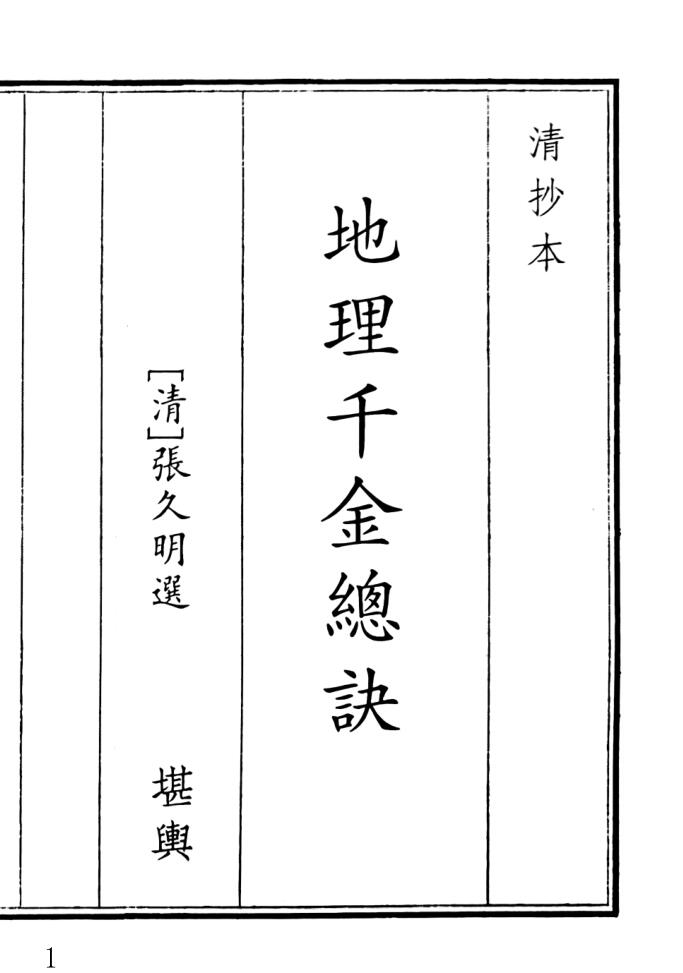 清抄本
地理千金總訣
[清]張久明選
堪輿
1